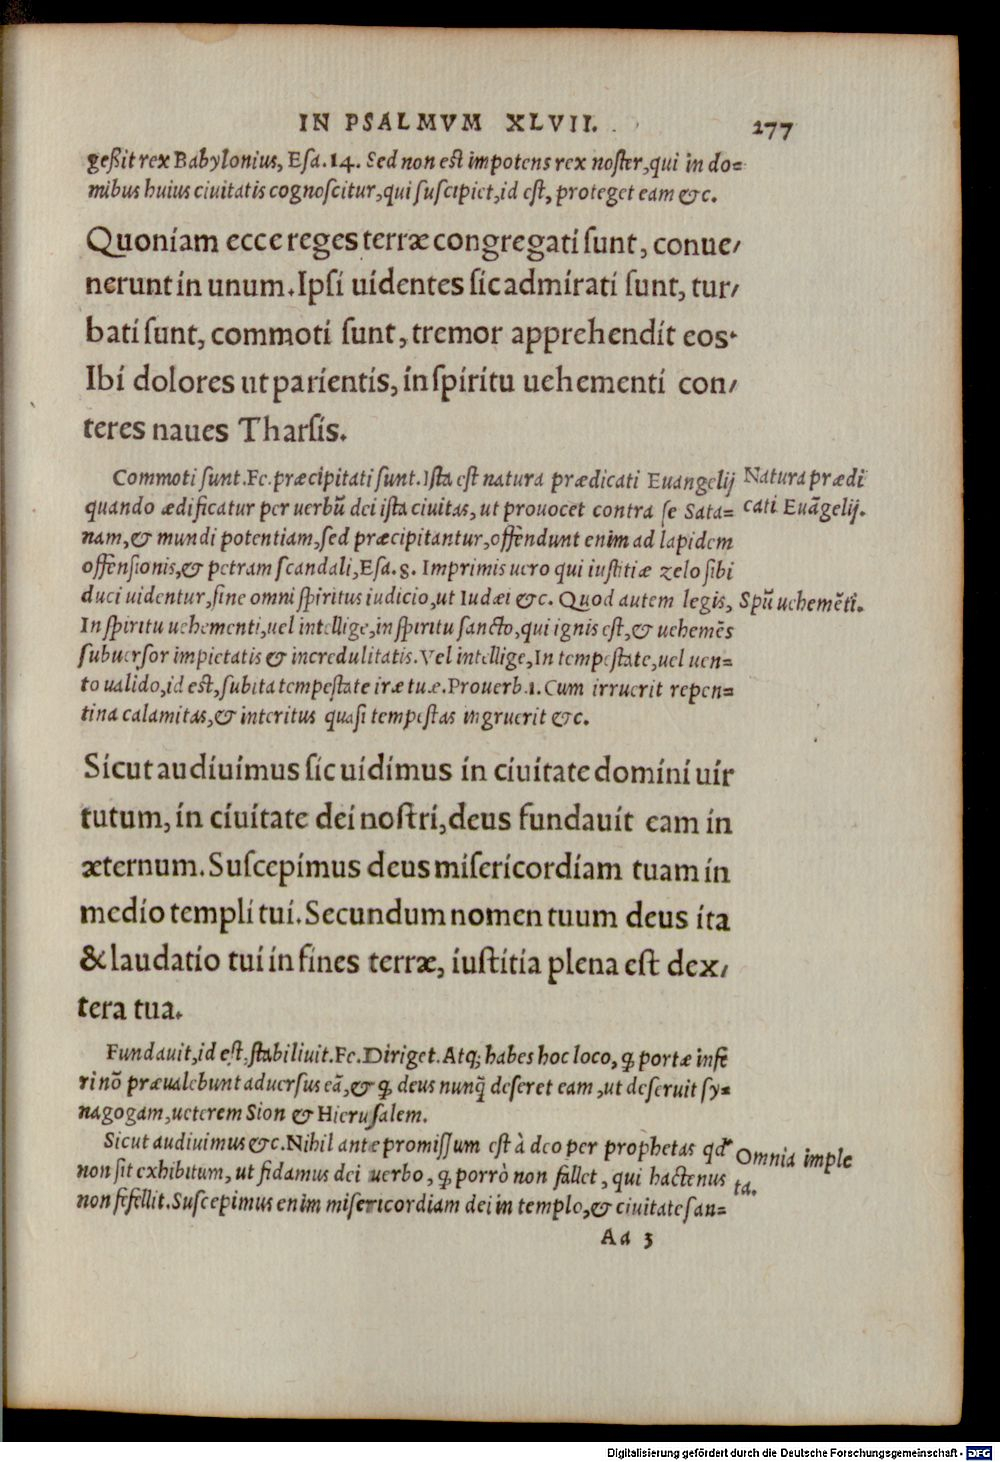 IN PSALMVM XLVII.
277
geßit rex Babylonius, Esa. 14. Sed non est impotens rex noster, qui in do=
mibus huius ciuitatis cognoscitur, qui suscipiet, id est, proteget eam &c.
Quoniam ecce reges terræ congregati sunt, conue/
nerunt in unum. Ipsi uidentes sic admirati sunt, tur/
bati sunt, commoti sunt, tremor apprehendit eos.
Ibi dolores ut parientis, in spiritu uehementi con/
teres naues Tharsis.
Commoti sunt. Fe. præcipitati sunt. Ista est natura prædicati Euangelij
Natura prædi
quando ædificatur per uerbũ dei ista ciuitas, ut prouocet contra se Sata=
cati Euãgelij.
nam, & mundi potentiam, sed præcipitantur, offendunt enim ad lapidem
offensionis, & petram scandali, Esa. 8. Imprimis uero qui iustitiæ zelo sibi
duci uidentur, sine omni spiritus iudicio, ut Iudæi &c. Quod autem legis,
Spũ uehemẽti.
In spiritu uehementi, uel intellige, in spiritu sancto, qui ignis est, & uehemẽs
subuersor impietatis & incredulitatis. Vel intellige, In tempestate, uel uen=
to ualido, id est, subita tempestate iræ tuæ. Prouerb. 1. Cum irruerit repen=
tina calamitas, & interitus quasi tempestas ingruerit &c.
Sicut audiuimus sic uidimus in ciuitate domini uir
tutum, in ciuitate dei nostri, deus fundauit eam in
æternum. Suscepimus deus misericordiam tuam in
medio templi tui. Secundum nomen tuum deus ita
& laudatio tui in fines terræ, iustitia plena est dex/
tera tua.
Fundauit, id est, stabiliuit. Fe. Diriget. Atq; habes hoc loco, ꝙ portæ infe
ri nõ præualebunt aduersus eã, & ꝙ deus nunq̃ deseret eam, ut deseruit sy=
nagogam, ueterem Sion & Hierusalem.
Sicut audiuimus &c. Nihil ante promissum est à deo per prophetas qd'
Omnia imple
non sit exhibitum, ut fidamus dei uerbo, ꝙ porrò non fallet, qui hactenus
ta.
non fefellit. Suscepimus enim misericordiam dei in templo, & ciuitate san=
Aa 3
Digitalisierung gefördert durch die Deutsche Forschungsgemeinschaft - DFG